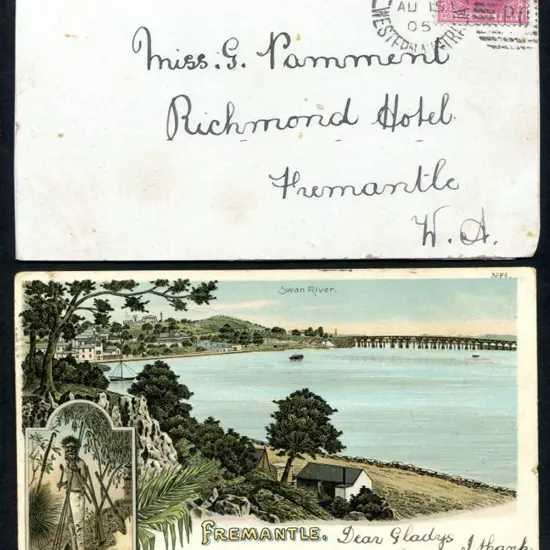 AU 15
05
WESTERN AUSTRALIA
Miss. G. Pamment
Richmond Hotel
Fremantle
W. A.
Swan River.
FREMANTLE.
Dear Gladys I thank